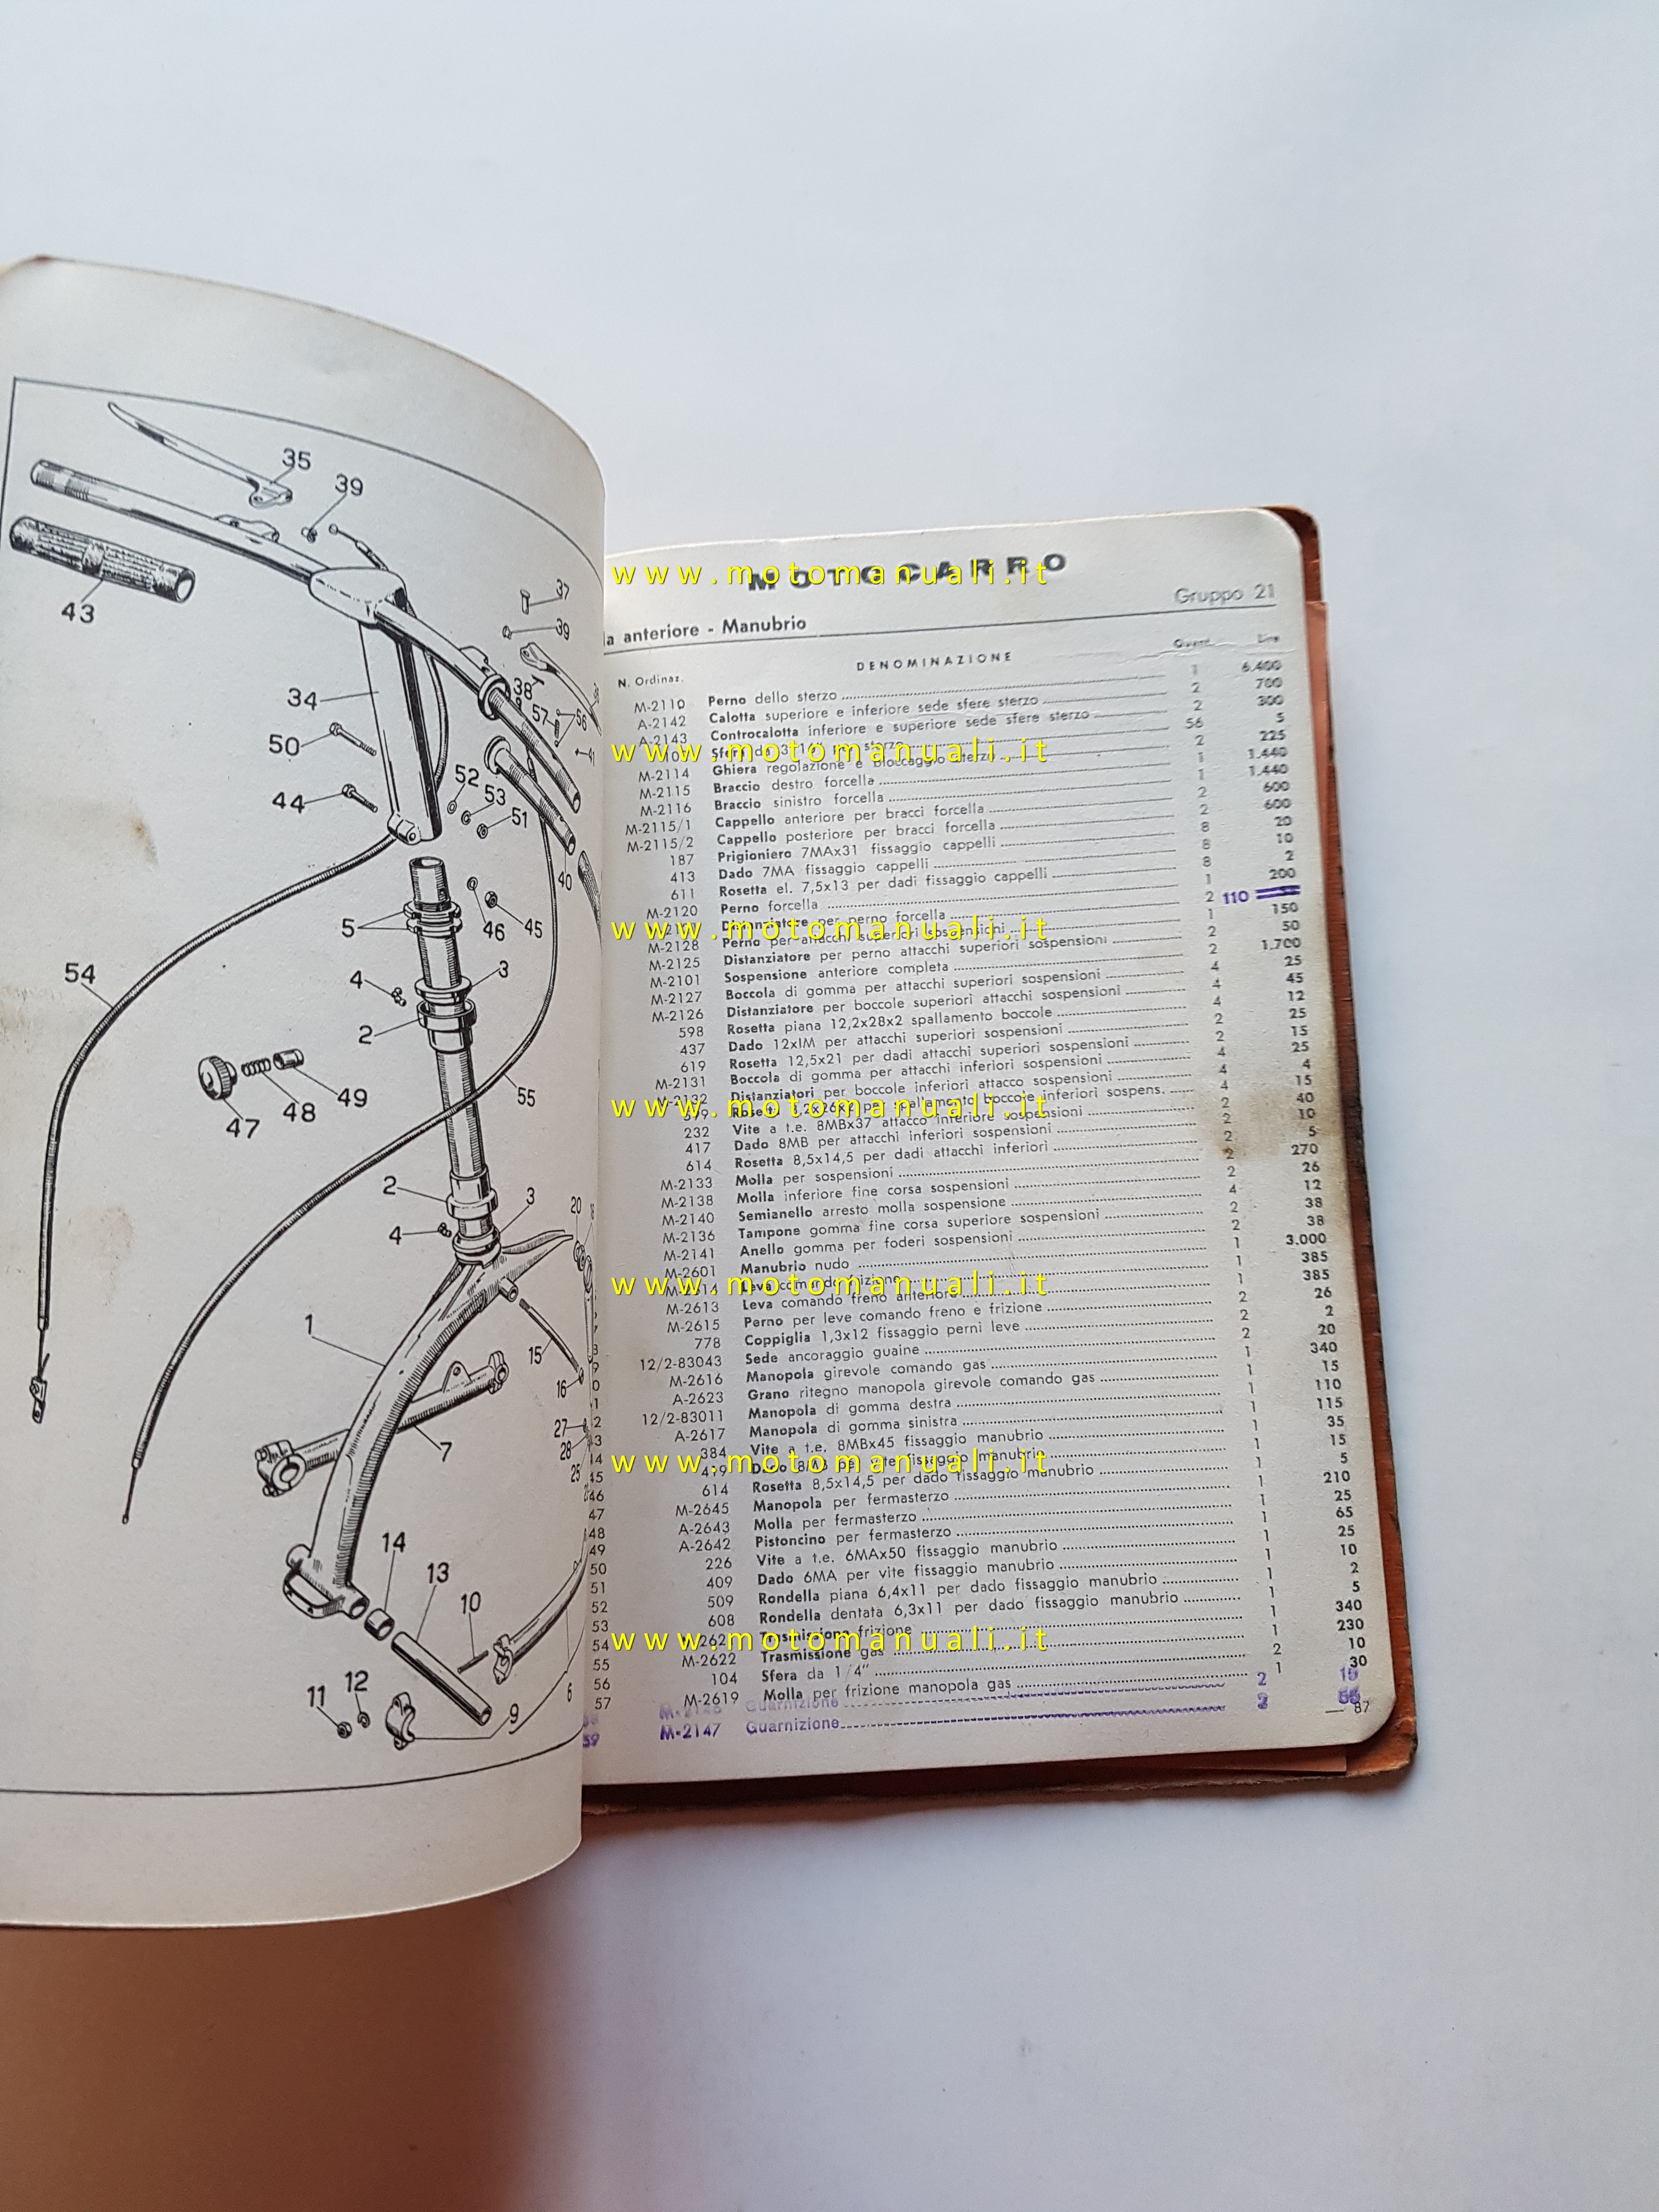 35
39
43
37
39
34
38
57
56
41
50
52
53
44
51
40
5
46
45
54
4
3
2
47
48
49
55
2
3
20
4
1
15
16
7
27
28
25
14
13
10
12
11
9
6
MOTOCARRO
Gruppo 21
a anteriore - Manubrio
N. Ordinaz. DENOMINAZIONE Quant. Lire
M-2110 Perno dello sterzo 1 6.400
A-2142 Calotta superiore e inferiore sede sfere sterzo 2 700
A-2143 Controcalotta inferiore e superiore sede sfere sterzo 2 300
Sfera da 3/16" per sterzo 56 5
M-2114 Ghiera regolazione e bloccaggio sterzo 2 225
M-2115 Braccio destro forcella 1 1.440
M-2116 Braccio sinistro forcella 1 1.440
M-2115/1 Cappello anteriore per bracci forcella 2 600
M-2115/2 Cappello posteriore per bracci forcella 2 600
187 Prigioniero 7MAx31 fissaggio cappelli 8 20
413 Dado 7MA fissaggio cappelli 8 10
611 Rosetta el. 7,5x13 per dadi fissaggio cappelli 8 2
M-2120 Perno forcella 1 200
Distanziatore per perno forcella 2 110
M-2128 Perno per attacchi superiori sospensioni 1 150
M-2125 Distanziatore per perno attacchi superiori sospensioni 2 50
M-2101 Sospensione anteriore completa 2 1.700
M-2127 Boccola di gomma per attacchi superiori sospensioni 4 25
M-2126 Distanziatore per boccole superiori attacchi sospensioni 4 45
598 Rosetta piana 12,2x28x2 spallamento boccole 4 12
437 Dado 12xIM per attacchi superiori sospensioni 2 25
619 Rosetta 12,5x21 per dadi attacchi superiori sospensioni 2 15
M-2131 Boccola di gomma per attacchi inferiori sospensioni 4 25
M-2132 Distanziatori per boccole inferiori attacco sospensioni 4 4
579 Rosetta 8,2x26x2 per spallamento boccole inferiori sospens. 4 15
232 Vite a t.e. 8MBx37 attacco inferiore sospensioni 2 40
417 Dado 8MB per attacchi inferiori sospensioni 2 10
614 Rosetta 8,5x14,5 per dadi attacchi inferiori 2 5
M-2133 Molla per sospensioni 2 270
M-2138 Molla inferiore fine corsa sospensioni 2 26
M-2140 Semianello arresto molla sospensione 4 12
M-2136 Tampone gomma fine corsa superiore sospensioni 2 38
M-2141 Anello gomma per foderi sospensioni 2 38
M-2601 Manubrio nudo 1 3.000
M-2614 Leva comando frizione 1 385
M-2613 Leva comando freno anteriore 1 385
M-2615 Perno per leve comando freno e frizione 2 26
778 Coppiglia 1,3x12 fissaggio perni leve 2 2
12/2-83043 Sede ancoraggio guaine 2 20
M-2616 Manopola girevole comando gas 1 340
A-2623 Grano ritegno manopola girevole comando gas 1 15
12/2-83011 Manopola di gomma destra 1 110
A-2617 Manopola di gomma sinistra 1 115
384 Vite a t.e. 8MBx45 fissaggio manubrio 1 35
Dado 8MB per vite fissaggio manubrio 1 15
45 614 Rosetta 8,5x14,5 per dado fissaggio manubrio 1 5
46 M-2645 Manopola per fermasterzo 1 210
47 A-2643 Molla per fermasterzo 1 25
48 A-2642 Pistoncino per fermasterzo 1 65
49 226 Vite a t.e. 6MAx50 fissaggio manubrio 1 25
50 409 Dado 6MA per vite fissaggio manubrio 1 10
51 509 Rondella piana 6,4x11 per dado fissaggio manubrio 1 2
52 608 Rondella dentata 6,3x11 per dado fissaggio manubrio 1 5
53 Trasmissione frizione 1 340
54 M-2622 Trasmissione gas 1 230
55 104 Sfera da 1/4" 2 10
56 M-2619 Molla per frizione manopola gas 1 30
57
Guarnizione 2
59 M-2147 Guarnizione 2
87
www.motomanuali.it
www.motomanuali.it
www.motomanuali.it
www.motomanuali.it
www.motomanuali.it
www.motomanuali.it
www.motomanuali.it